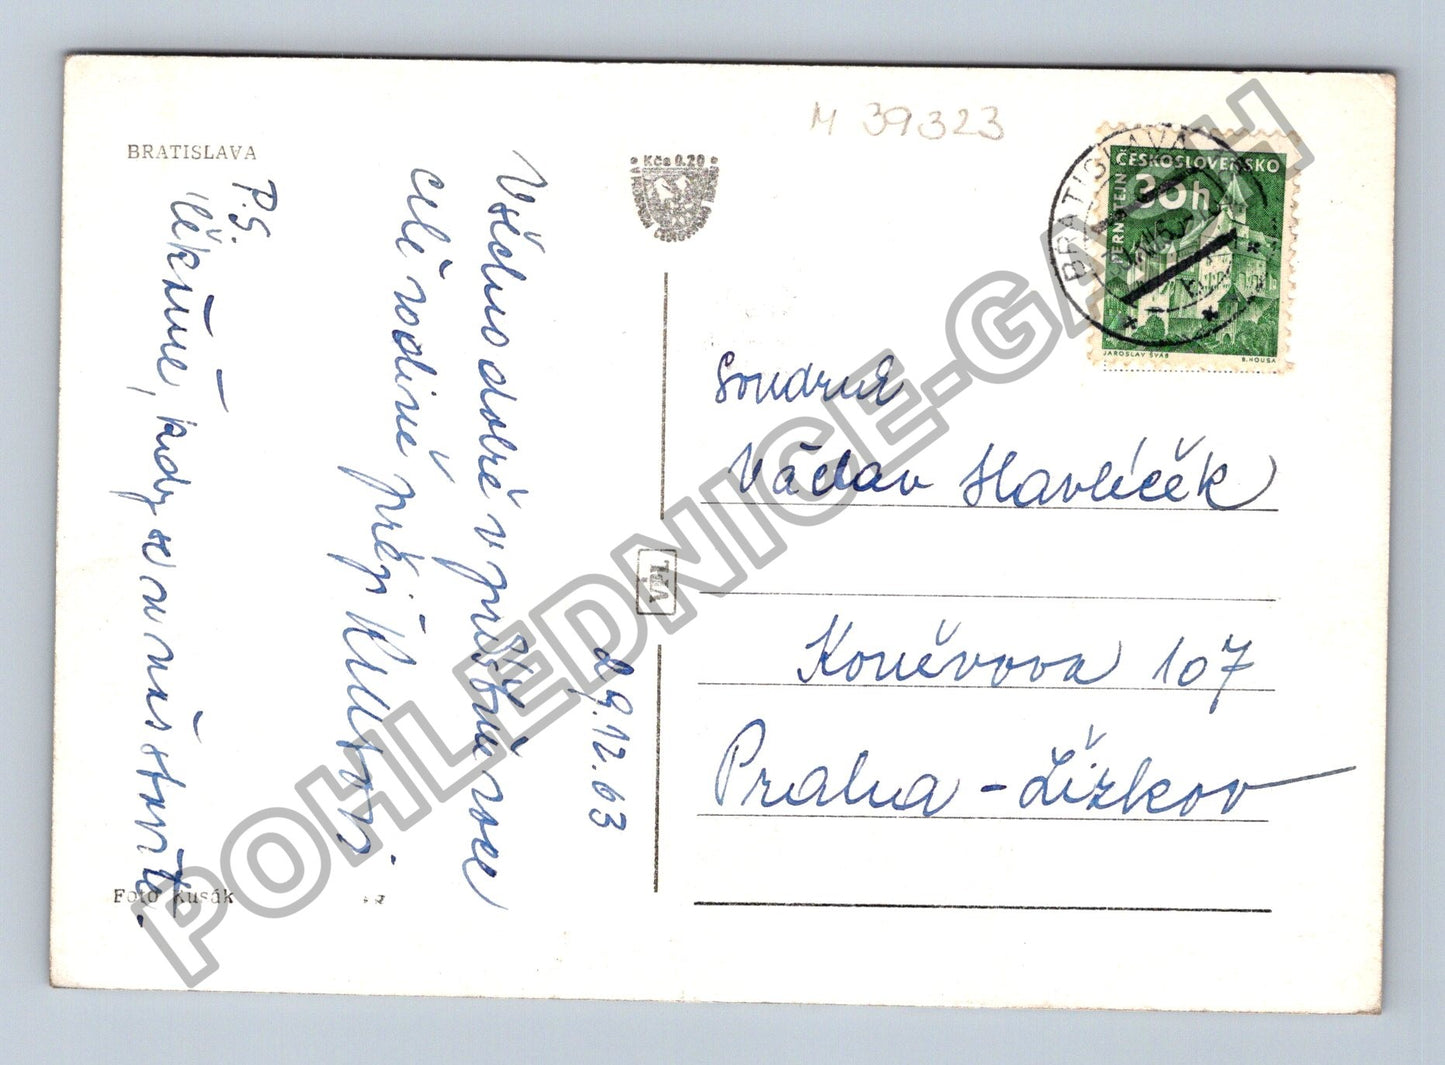 BRATISLAVA
M 39323
Kčs 0.20
BRATISLAVA
ČESKOSLOVENSKO
30h
PERNŠTEJN
JAROSLAV ŠVÁB
B. HOUSA
29.12.63
Všechno dobré v příštím roce
celé rodině přeji
P.S.
řekněte, kdy se u nás stavíte.
Soudruh
Václav Havlíček
Koněvova 107
Praha - Žižkov
VČL
Foto Rusák
POHLEDNICE-GARCH